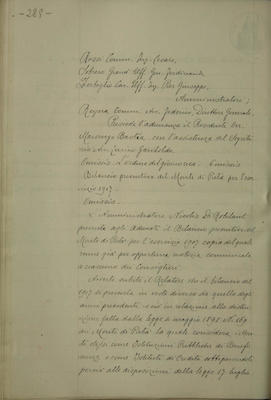 - 289 -
Rossi Comm. Ing. Cesare,
Sobrero Grand' Uff. Gen. Ferdinando
Cav. Uff. Ing. Pier Giuseppe,
Amministratori;
Comm. Av. Federico, Direttore Generale,
Presiede l'adunanza il Presidente Gr.
Bastia con l'assistenza del Segreta
rio Av. Garibaldi.
Omissis. L'ordine del giorno reca: Omissis
Bilancio preventivo del Monte di Pietà per l'eser
cizio 1907.
Omissis.
L'Amministratore Nicolis Di Robilant
presenta agli adunati il Bilancio preventivo del
Monte di Pietà per l'esercizio 1907 copia del quale
venne già per opportuna notizia comunicata
a ciascuno dei Consiglieri.
Avverte subito il Relatore che il bilancio del
1907 si presenta in veste diversa da quella degli
anni precedenti e ciò in relazione alla distin
zione fatta dalla legge 4 maggio 1898 N. 169
sui Monti di Pietà la quale considera i Mon
ti stessi come Istituzioni Pubbliche di Benefi
cenza e come Istituti di Credito sottoponendoli
perciò alle disposizioni della legge 17 luglio